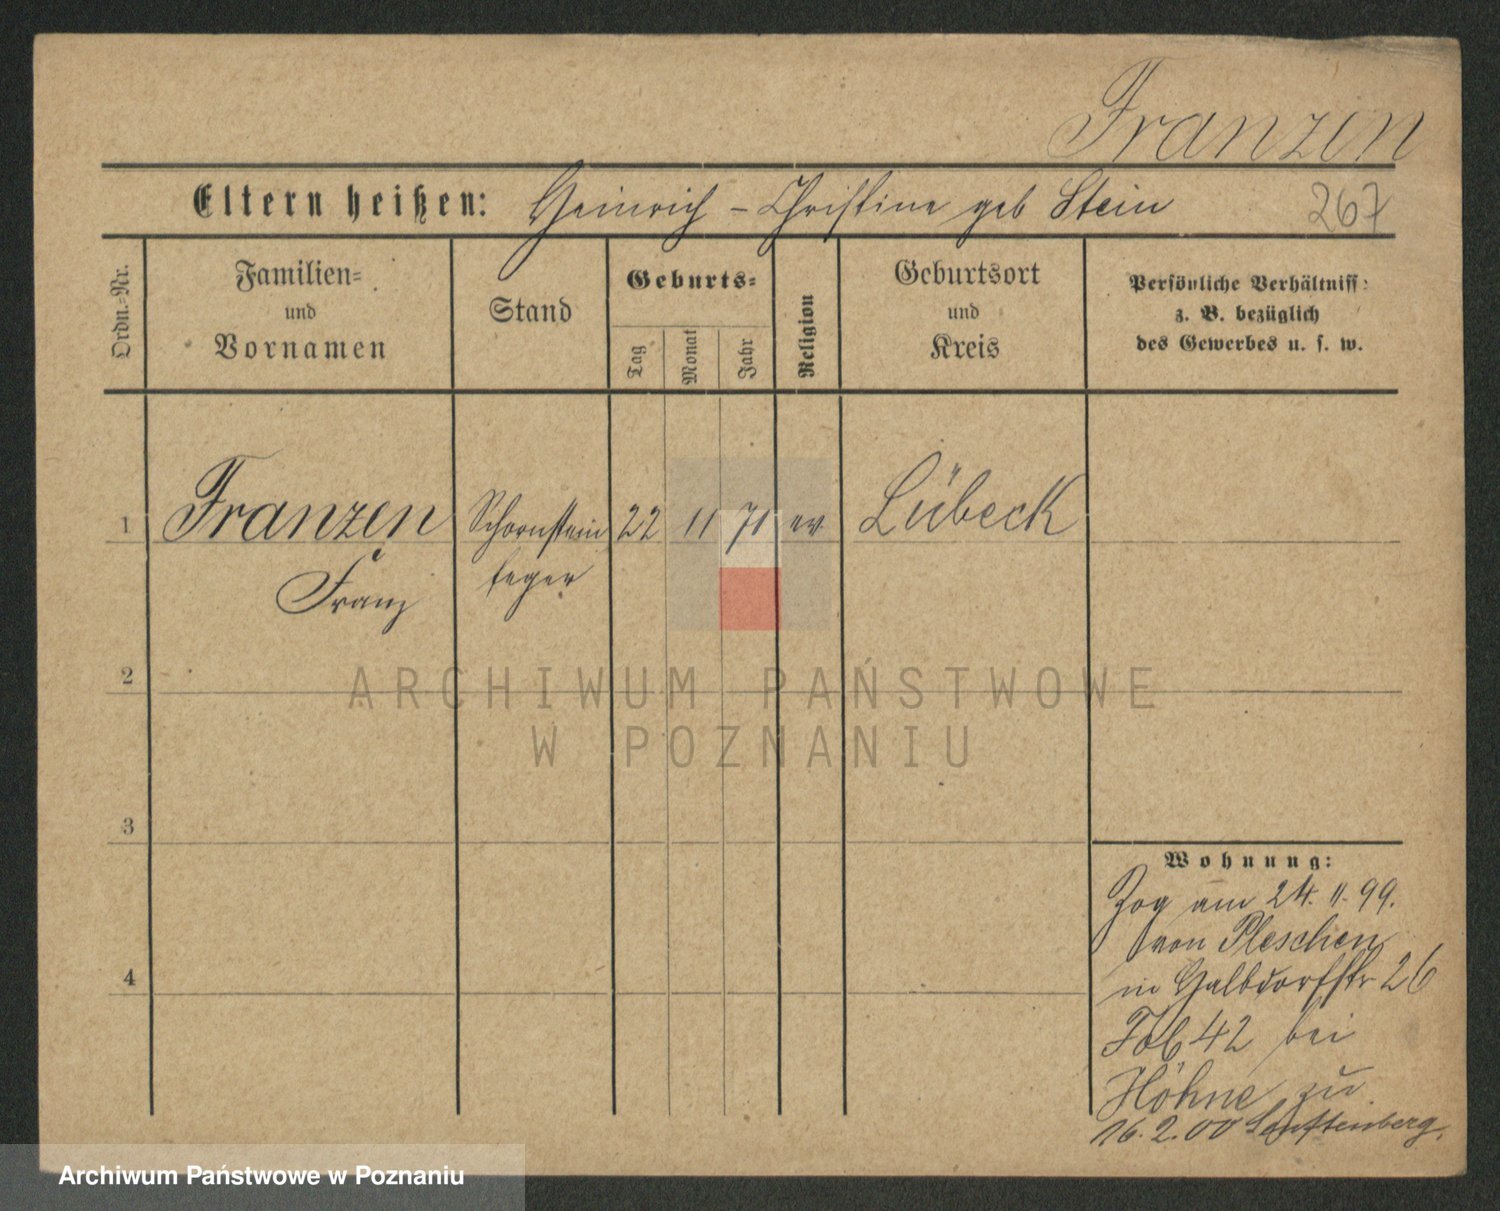 Franzen
Eltern heißen: Heinrich - Christine geb Stein 267
Ordn.=Nr.
Familien=
und
Vornamen
Stand
Geburts=
Tag
Monat
Jahr
Religion
Geburtsort
und
Kreis
Persönliche Verhältniss:
z. B. bezüglich
des Gewerbes u. s. w.
1 Franzen Schornstein 22 11 71 ev. Lübeck
Franz feger
2
ARCHIWUM PAŃSTWOWE
W POZNANIU
3
4
Wohnung:
Zog am 24. 11. 99.
von Pleschen
in Halbdorfstr 26
Fol 42 bei
Höhne zu
16. 2. 00 Senftenberg.
Archiwum Państwowe w Poznaniu